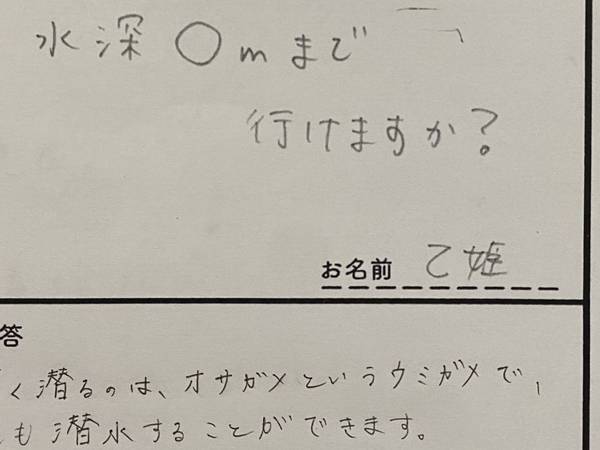 水深 ○m まで
行けますか?
お名前 乙姫
答
く潜るのは、オサガメというウミガメで、
も潜水することができます。